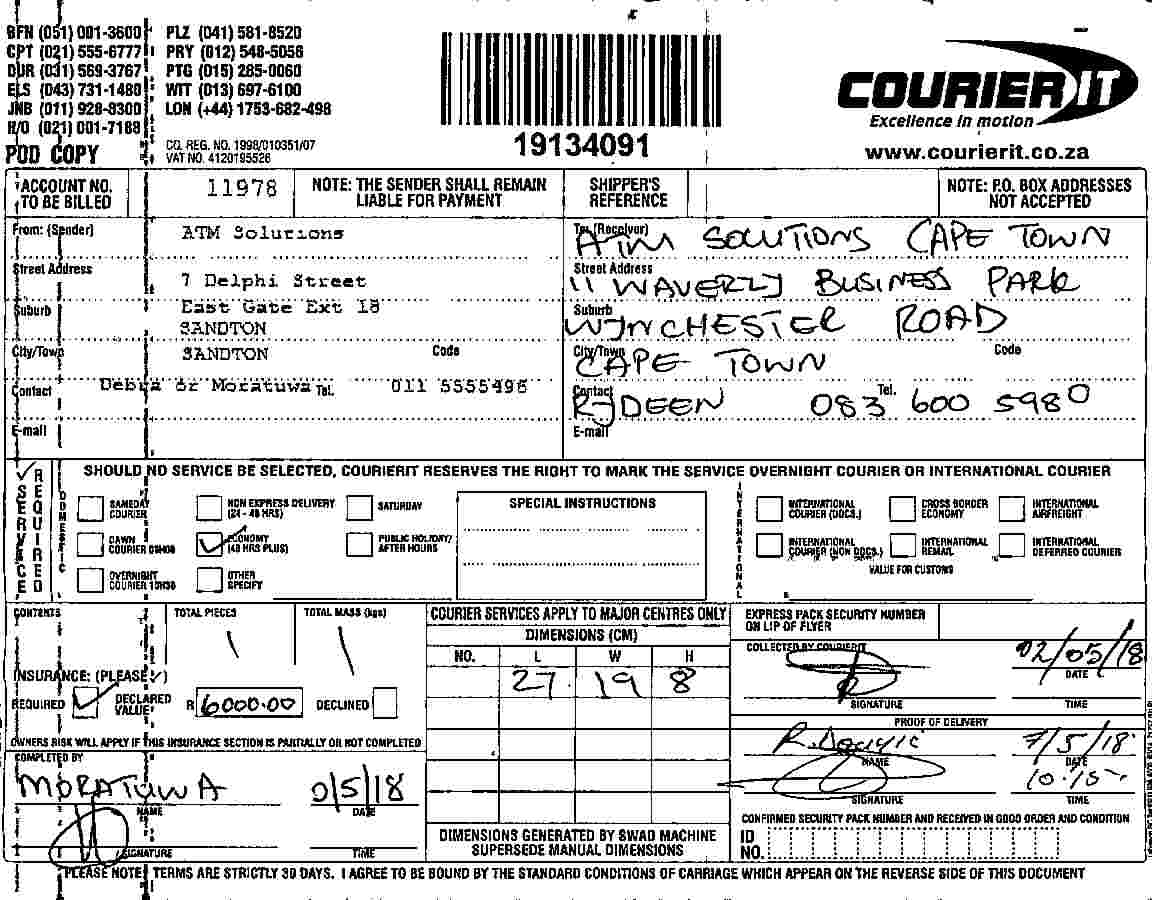 BFN (051) 001-3600 PLZ (041) 581-8520
CPT (021) 555-6777 PRY (012) 548-5056
DUR (031) 569-3767 PTG (015) 285-0060
ELS (043) 731-1480 WIT (013) 697-6100
JNB (011) 928-8300 LON (+44) 1753-682-498
H/O (021) 001-7188
POD COPY
CO. REG. NO. 1998/010351/07
VAT NO. 4120195526
19134091
COURIERIT
Excellence in motion
www.courierit.co.za
ACCOUNT NO. TO BE BILLED 11978
NOTE: THE SENDER SHALL REMAIN LIABLE FOR PAYMENT
SHIPPER'S REFERENCE
NOTE: P.O. BOX ADDRESSES NOT ACCEPTED
From: (Sender) ATM Solutions
Street Address 7 Delphi Street
Suburb East Gate Ext 18
SANDTON
City/Town SANDTON Code
Contact Debra or Moratuwa Tel. 011 5555496
E-mail
To: (Receiver) ATM SOLUTIONS CAPE TOWN
Street Address 11 WAVERLY BUSINESS PARK
Suburb WYNCHESTER ROAD
City/Town CAPE TOWN Code
Contact RYDEEN Tel. 083 600 5980
E-mail
SERVICE REQUIRED
SHOULD NO SERVICE BE SELECTED, COURIERIT RESERVES THE RIGHT TO MARK THE SERVICE OVERNIGHT COURIER OR INTERNATIONAL COURIER
DOMESTIC
SAMEDAY COURIER
NON EXPRESS DELIVERY (24 - 48 HRS)
SATURDAY
DAWN COURIER 09H00
ECONOMY (48 HRS PLUS)
PUBLIC HOLIDAY/ AFTER HOURS
OVERNIGHT COURIER 10H30
OTHER SPECIFY
SPECIAL INSTRUCTIONS
INTERNATIONAL
INTERNATIONAL COURIER (DOCS.)
CROSS BORDER ECONOMY
INTERNATIONAL AIRFREIGHT
INTERNATIONAL COURIER (NON DOCS.)
INTERNATIONAL REMAIL
INTERNATIONAL DEFERRED COURIER
VALUE FOR CUSTOMS
CONTENTS
TOTAL PIECES 1
TOTAL MASS (kgs) 1
INSURANCE: (PLEASE ✓)
REQUIRED ✓ DECLARED VALUE: R 6000.00 DECLINED
OWNERS RISK WILL APPLY IF THIS INSURANCE SECTION IS PARTIALLY OR NOT COMPLETED
COMPLETED BY
MORATUWA
NAME DATE
SIGNATURE TIME
COURIER SERVICES APPLY TO MAJOR CENTRES ONLY
DIMENSIONS (CM)
NO. L W H
27 19 8
DIMENSIONS GENERATED BY SWAD MACHINE SUPERSEDE MANUAL DIMENSIONS
EXPRESS PACK SECURITY NUMBER ON LIP OF FLYER
COLLECTED BY COURIERIT 02/05/18
DATE
SIGNATURE TIME
PROOF OF DELIVERY
7/5/18
NAME DATE
10:15
SIGNATURE TIME
CONFIRMED SECURITY PACK NUMBER AND RECEIVED IN GOOD ORDER AND CONDITION
ID NO.
PLEASE NOTE TERMS ARE STRICTLY 30 DAYS. I AGREE TO BE BOUND BY THE STANDARD CONDITIONS OF CARRIAGE WHICH APPEAR ON THE REVERSE SIDE OF THIS DOCUMENT